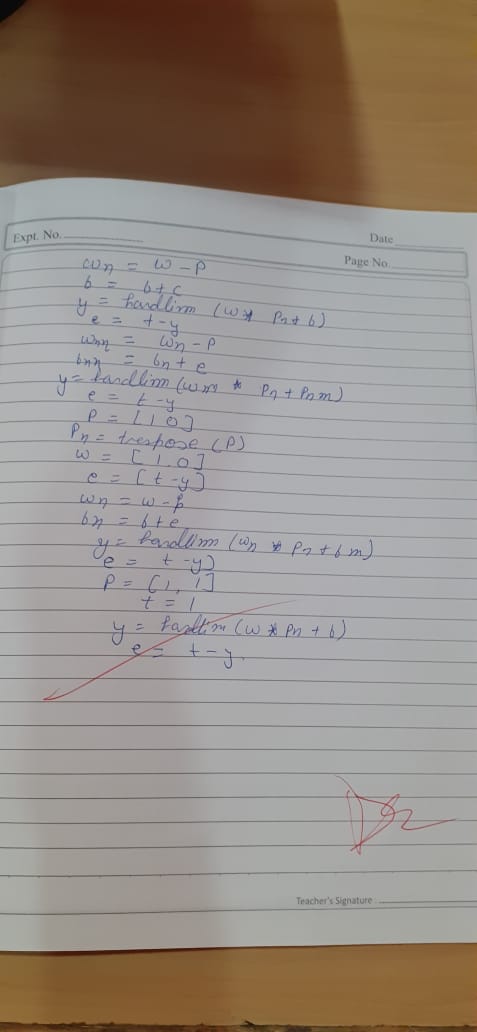 Expt. No.
Date
Page No.
wn = w - p
b = b + c
y = hardlim (w * Pn + b)
e = t - y
wnn = wn - p
bnn = bn + e
y = hardlim (wm * Pn + Pnm)
e = t - y
P = [1 0]
Pn = trespose (P)
w = [1.0]
e = [t - y]
wn = w - p
bn = b + e
y = hardlim (wn * Pn + bm)
e = t - y)
P = [1, 1]
t = 1
y = hardlim (w * Pn + b)
e = t - y.
Teacher's Signature :